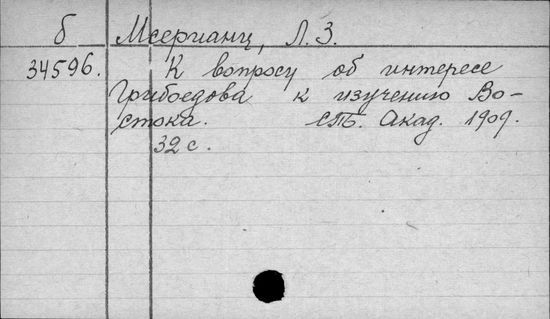 б Мсерианц, Л. З.
34596. К вопросу об интересе
Грибоедова к изучению Во-
стока. СПБ. Акад. 1909.
32 с.